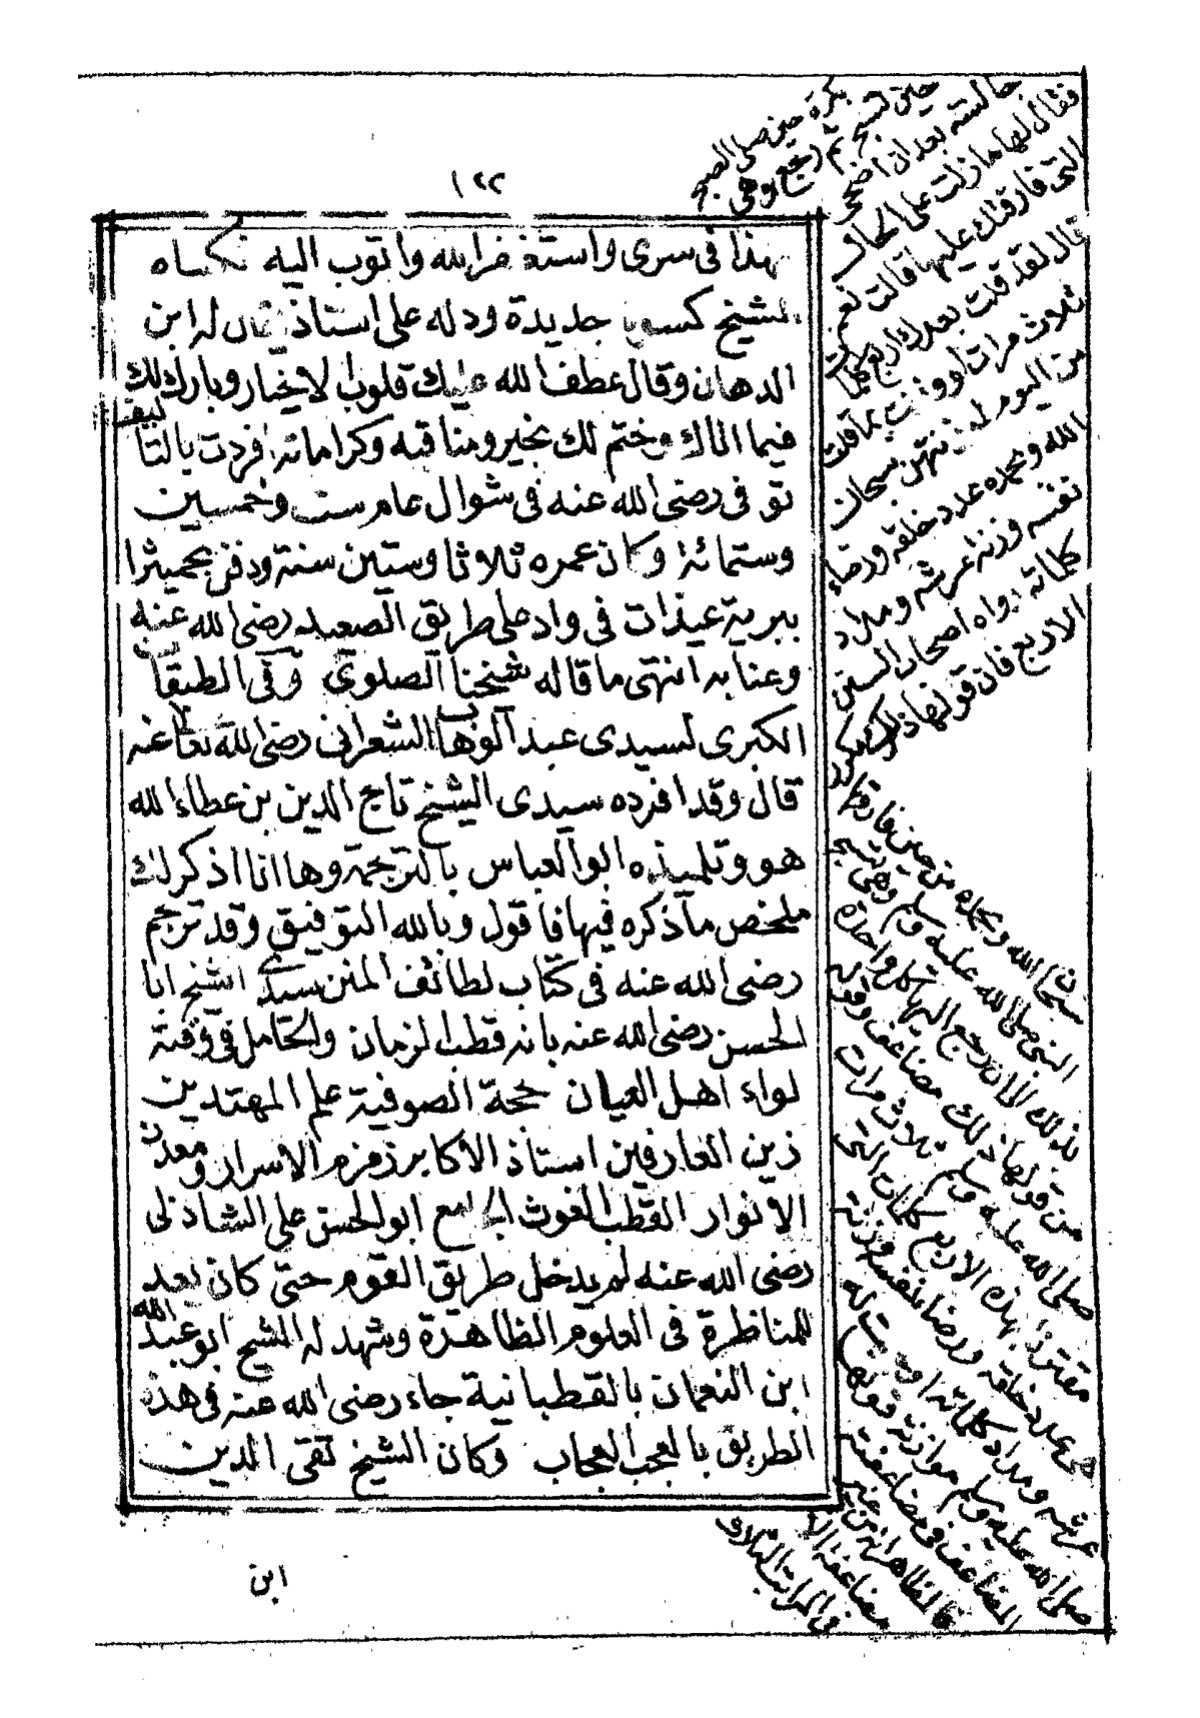 ١٢٢
بهذا فى سرى واستغفر الله واتوب اليه فكساه
الشيخ كسوة جديدة ودله على استاذ فقال له ابن
الدهان وقال عطف الله عليك قلوب الاخيار وبارك لك
فيما اتاك وختم لك بخير ومناقبه وكراماته افردت بالتاليف
توفى رضى الله عنه فى شوال عام ست وخمسين
وستمائة وكان عمره ثلاثا وستين سنة ودفن بحميثرا
ببرية عيذاب فى واد على طريق الصعيد رضى الله عنه
وعنا به انتهى ما قاله شيخنا الصلوى وفى الطبقات
الكبرى لسيدى عبد الوهاب الشعرانى رضى الله تعالى عنه
قال وقد افرده سيدى الشيخ تاج الدين بن عطاء الله
هو وتلميذه ابو العباس بالترجمة وها انا اذكر لك
ملخص ما ذكره فيها فاقول وبالله التوفيق وقد ترجم
رضى الله عنه فى كتاب لطائف المنن سيدى الشيخ ابا
الحسن رضى الله عنه بانه قطب الزمان والحامل فى وقته
لواء اهل العيان حجة الصوفية علم المهتدين
زين العارفين استاذ الاكابر زمزم الاسرار ومعدن
الانوار القطب الغوث الجامع ابو الحسن على الشاذلى
رضى الله عنه لم يدخل طريق القوم حتى كان يعد
للمناظرة فى العلوم الظاهرة وشهد له الشيخ ابو عبد الله
ابن النعمان بالقطبانية جاء رضى الله عنه فى هذه
الطريق بالعجب العجاب وكان الشيخ تقى الدين
ابن
بكرة حين صلى الصبح وهى
حين تسبح ثم رجع
جالسة بعد ان اضحى
فقال لها ما زلت على الحال
التى فارقتك عليها قالت نعم
قال لقد قلت بعدك اربع كلمات
ثلاث مرات لو وزنت بما قلت
من اليوم لوزنتهن سبحان
الله وبحمده عدد خلقه ورضاء
نفسه وزنة عرشه ومداد
كلماته رواه اصحاب السنن
الاربع فان قولها ذلك
سبحان الله وبحمده من حين فارقها
النبى صلى الله عليه وسلم وهى تسبح
كذلك الى ان رجع اليها كل واحدة
من قولها ذلك مضاعف وقوله
صلى الله عليه وسلم ثلاث مرات
بهذه الاربع كلمات التى
هى عدد خلقه ورضا نفسه وزنة
عرشه ومداد كلماته
صلى الله عليه وسلم موازنة قولها
المضاعف فى مضاعفته
فالظاهر انه من غير
مضاعفة
فى المرات الثلاث